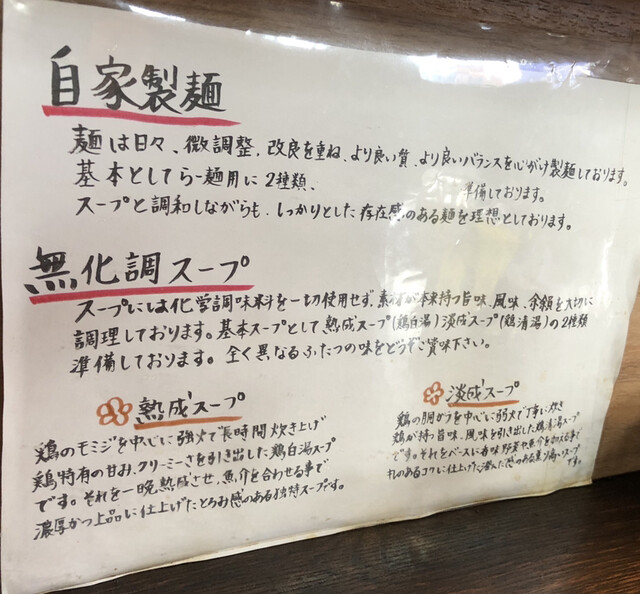 自家製麺
麺は日々、微調整、改良を重ね、より良い質、より良いバランスを心がけ製麺しております。
基本としてらー麺用に2種類、準備しております。
スープと調和しながらも、しっかりとした存在感のある麺を理想としております。
無化調スープ
スープには化学調味料を一切使用せず、素材が本来持つ旨味、風味、余韻を大切に
調理しております。基本スープとして熟成スープ(鶏白湯)淡成スープ(鶏清湯)の2種類
準備しております。全く異なるふたつの味をどうぞご賞味下さい。
熟成スープ
鶏のモミジを中心に強火で長時間炊き上げ
鶏特有の甘み、クリーミーさを引き出した鶏白湯スープ
です。それを一晩熟成させ、魚介を合わせる事で
濃厚かつ上品に仕上げたとろみ感のある独特スープです。
淡成スープ
鶏の胴ガラを中心に弱火で丁寧に炊き
鶏が持つ旨味、風味を引き出した鶏清湯スープ
です。それをベースに香味野菜や魚介を加える事で
キレのあるコクに仕上げた澄んだ感のある薫り高いスープ
です。